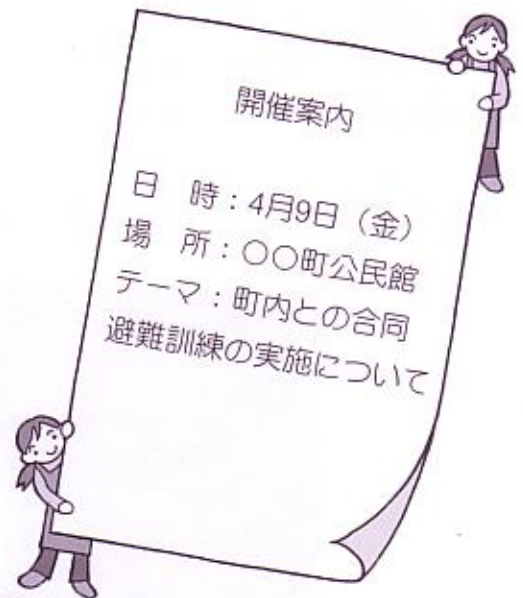 開催案内
日　時：4月9日（金）
場　所：〇〇町公民館
テーマ：町内との合同
避難訓練の実施について